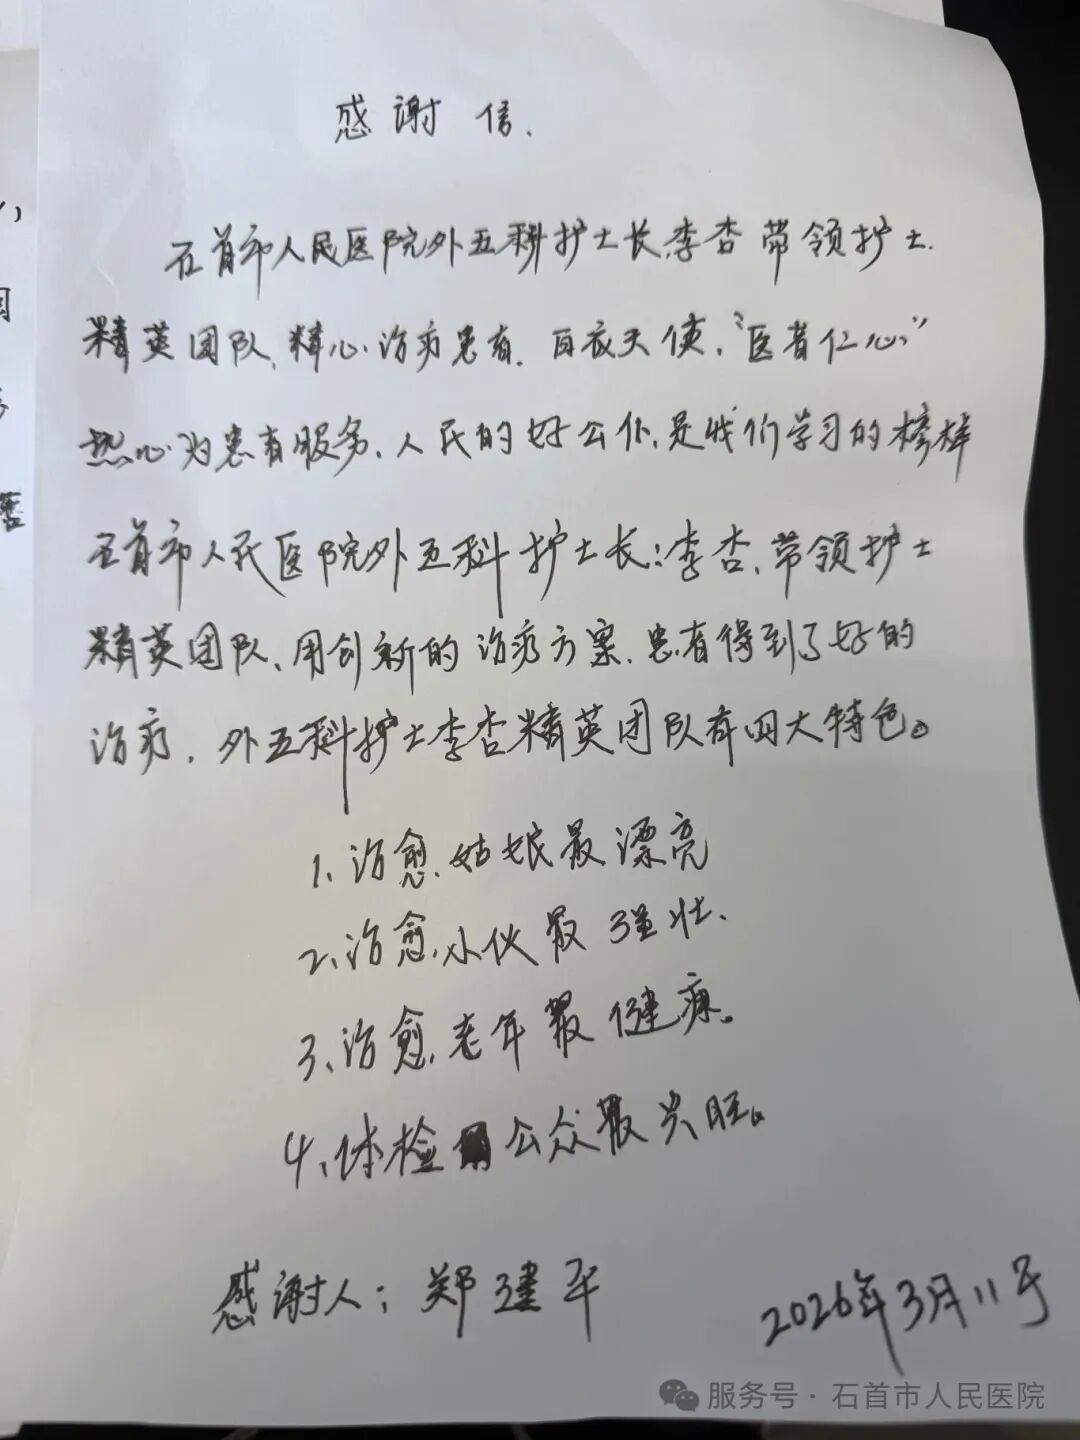 感谢信.
石首市人民医院外五科护士长李杏带领护士.
精英团队,精心治疗患者.白衣天使,"医者仁心"
热心为患者服务,人民的好公仆,是我们学习的榜样
石首市人民医院外五科护士长:李杏,带领护士
精英团队,用创新的治疗方案,患者得到了好的
治疗,外五科护士李杏精英团队有四大特色。
1、治愈姑娘最漂亮
2、治愈小伙最强壮.
3、治愈老年最健康。
4、体检公众最兴旺。
感谢人:郑建平
2026年3月11号
服务号·石首市人民医院